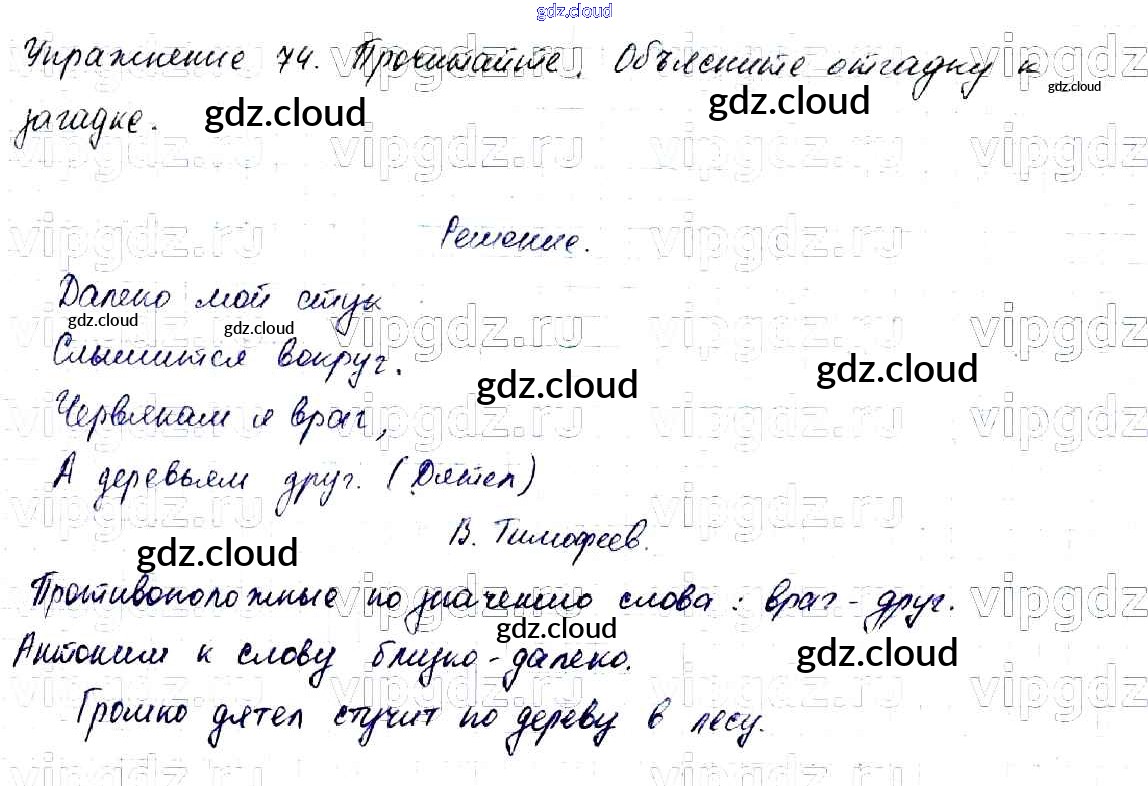 gdz.cloud
Упражнение 74. Прочитайте. Объясните отгадку к
gdz.cloud
загадке. gdz.cloud gdz.cloud
vipgdz.ru vipgdz.ru vipgdz.ru vipgdz
Решение.
vipgdz.ru vipgdz.ru vipgdz.ru vipgdz
Далеко мой стук
gdz.cloud gdz.cloud
Слышится вокруг.
gdz.cloud gdz.cloud
Червякам я враг,
А деревьям друг. (Дятел)
В. Тимофеев.
gdz.cloud
Противоположные по значению слова: враг - друг.
gdz.cloud
Антоним к слову близко - далеко. gdz.cloud
Громко дятел стучит по дереву в лесу.